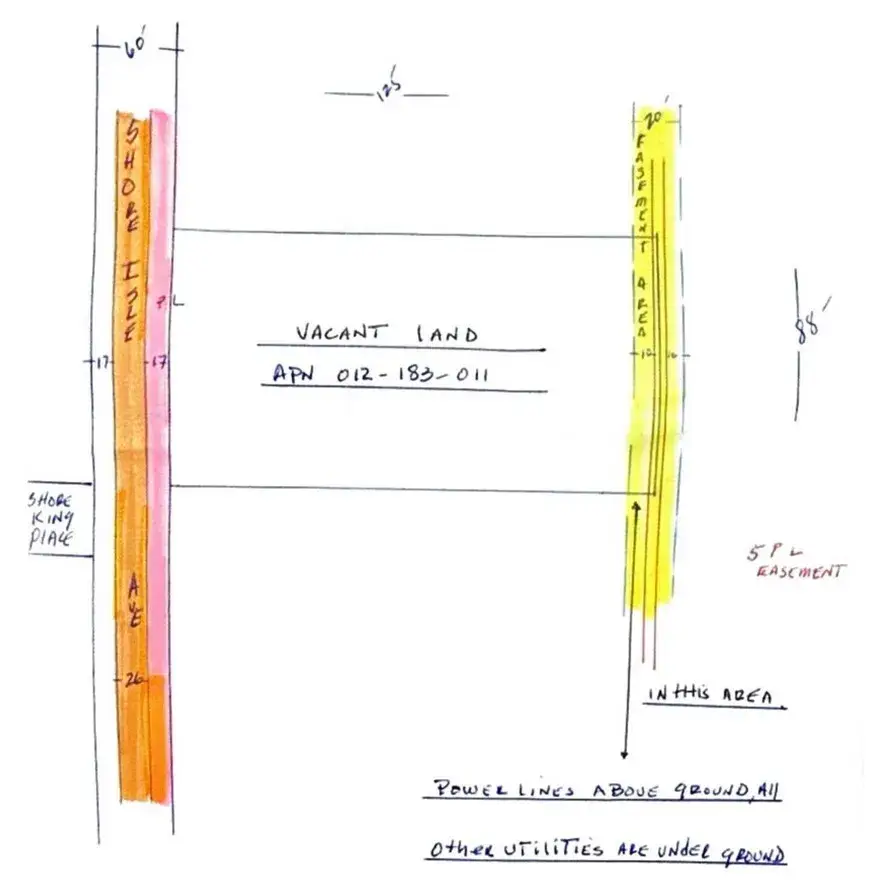 60'
125'
20'
SHORE ISLE AVE
EASEMENT AREA
PL
VACANT LAND
APN 012-183-011
88'
17
17
10
10
SHORE
KING
PLACE
5 P L
EASEMENT
26
IN THIS AREA.
POWER LINES ABOVE GROUND, All
OTHER UTILITIES ARE UNDER GROUND